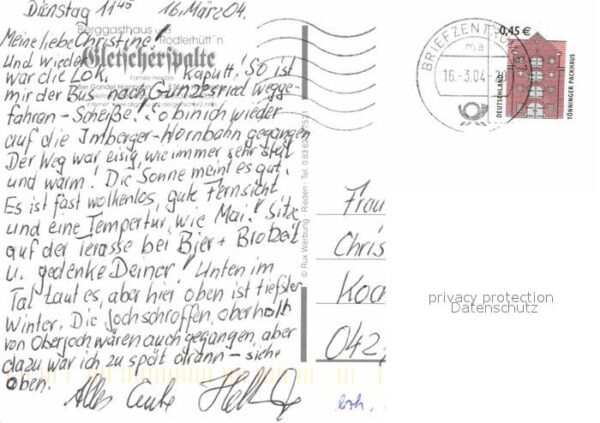 Dienstag 11⁴⁵ 16. März 04.
Meine liebe Christine!
Berggasthaus und Rodlerhütt'n
Gletscherspalte
Und wieder
war die Lok. kaputt! So ist
mir der Bus nach Gunzesried wegge-
fahren - Scheiße! So bin ich wieder
auf die Imberger-Hornbahn gegangen
Der Weg war eisig, wie immer sehr steil
und warm! Die Sonne meint es gut.
Es ist fast wolkenlos, gute Fernsicht
und eine Tempertur, wie Mai! Sitz
auf der Terasse bei Bier + Brotzeit
u. gedenke Deiner! Unten im
Tal taut es, aber hier oben ist tiefster
Winter. Die Jochschroffen, oberhalb
von Oberjoch wären auch gegangen, aber
dazu war ich zu spät drann - siehe
oben.
Alles Gute
© Rux Werbung · Rieden · Tel.
BRIEFZENTR
ma
16.-3.04
0,45 €
DEUTSCHLAND
TÖNNINGER PACKHAUS
Frau
Chris
Koc
042
privacy protection
Datenschutz